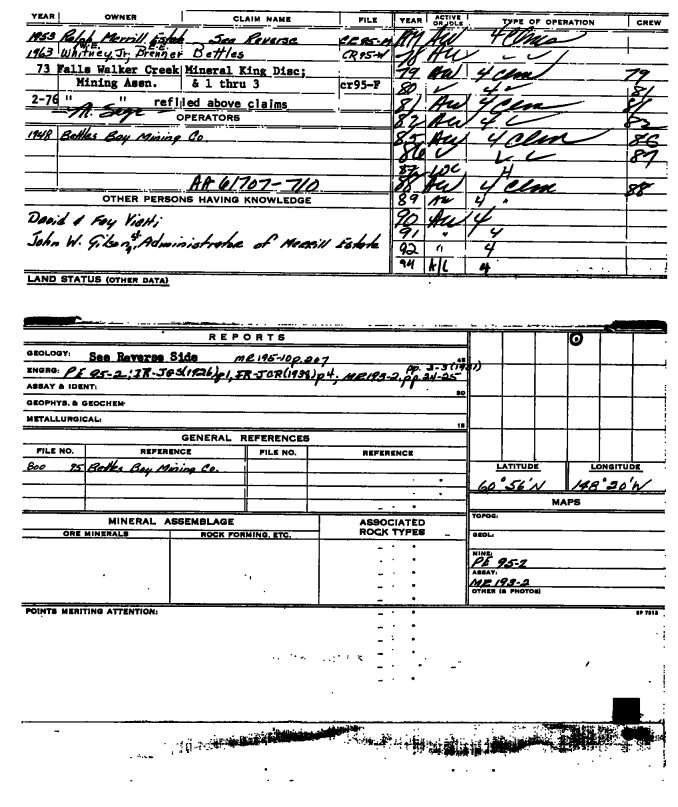 YEAR OWNER CLAIM NAME FILE YEAR ACTIVE OR IDLE TYPE OF OPERATION CREW
1953 Ralph Merrill Estate See Reverse
1963 Whitney, Jr, Brenner Bettles CR95-W
79 AW 4 Clm 79
73 Falls Walker Creek Mineral King Disc;
Mining Assn. & 1 thru 3 cr95-F
80 81
81 AW 4 Clm
2-76 " " refiled above claims
OPERATORS
82 AW 4
1948 Bettles Bay Mining Co.
85 AW 4 Clm 86
86 87
87 LOC
AA 61707-710
88 AW 4 Clm 88
OTHER PERSONS HAVING KNOWLEDGE
89 AW 4 "
David & Foy Vietti
90 AW 4
91 " 4
John W. Gilson, Administrator of Merrill Estate
92 " 4
94 A/L 4
LAND STATUS (OTHER DATA)
REPORTS
GEOLOGY: See Reverse Side MR195-10 p.207
ENGRG: PE 95-2; IR-JGS(1926)p1, IR-JCR(1938)p4; MR193-2, pp.24-25
ASSAY & IDENT:
GEOPHYS. & GEOCHEM:
METALLURGICAL:
GENERAL REFERENCES
FILE NO. REFERENCE FILE NO. REFERENCE
800 95 Bettles Bay Mining Co.
LATITUDE LONGITUDE
60°56'N 148°20'W
MAPS
MINERAL ASSEMBLAGE ASSOCIATED ROCK TYPES
ORE MINERALS ROCK FORMING, ETC.
TOPOG:
GEOL:
MINE:
PE 95-2
ASSAY:
MR 193-2
OTHER (& PHOTOS)
POINTS MERITING ATTENTION: